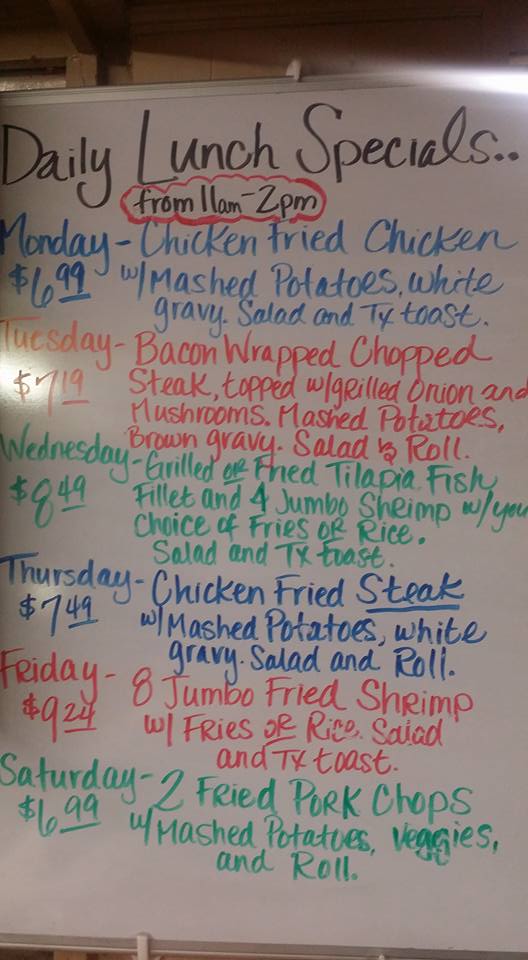 Daily Lunch Specials..
from 11am-2pm
Monday - Chicken Fried Chicken
$6.99 w/Mashed Potatoes, white
gravy. Salad and Tx toast.
Tuesday - Bacon Wrapped Chopped
$7.19 Steak, topped w/grilled Onion and
Mushrooms. Mashed Potatoes,
Brown gravy. Salad & Roll.
Wednesday - Grilled or Fried Tilapia Fish
$8.49 Fillet and 4 Jumbo Shrimp w/your
Choice of Fries OR Rice.
Salad and Tx toast.
Thursday - Chicken Fried Steak
$7.49 w/Mashed Potatoes, white
gravy. Salad and Roll.
Friday - 8 Jumbo Fried Shrimp
$9.24 w/ Fries OR Rice. Salad
and Tx toast.
Saturday - 2 Fried Pork Chops
$6.99 w/Mashed Potatoes, Veggies,
and Roll.